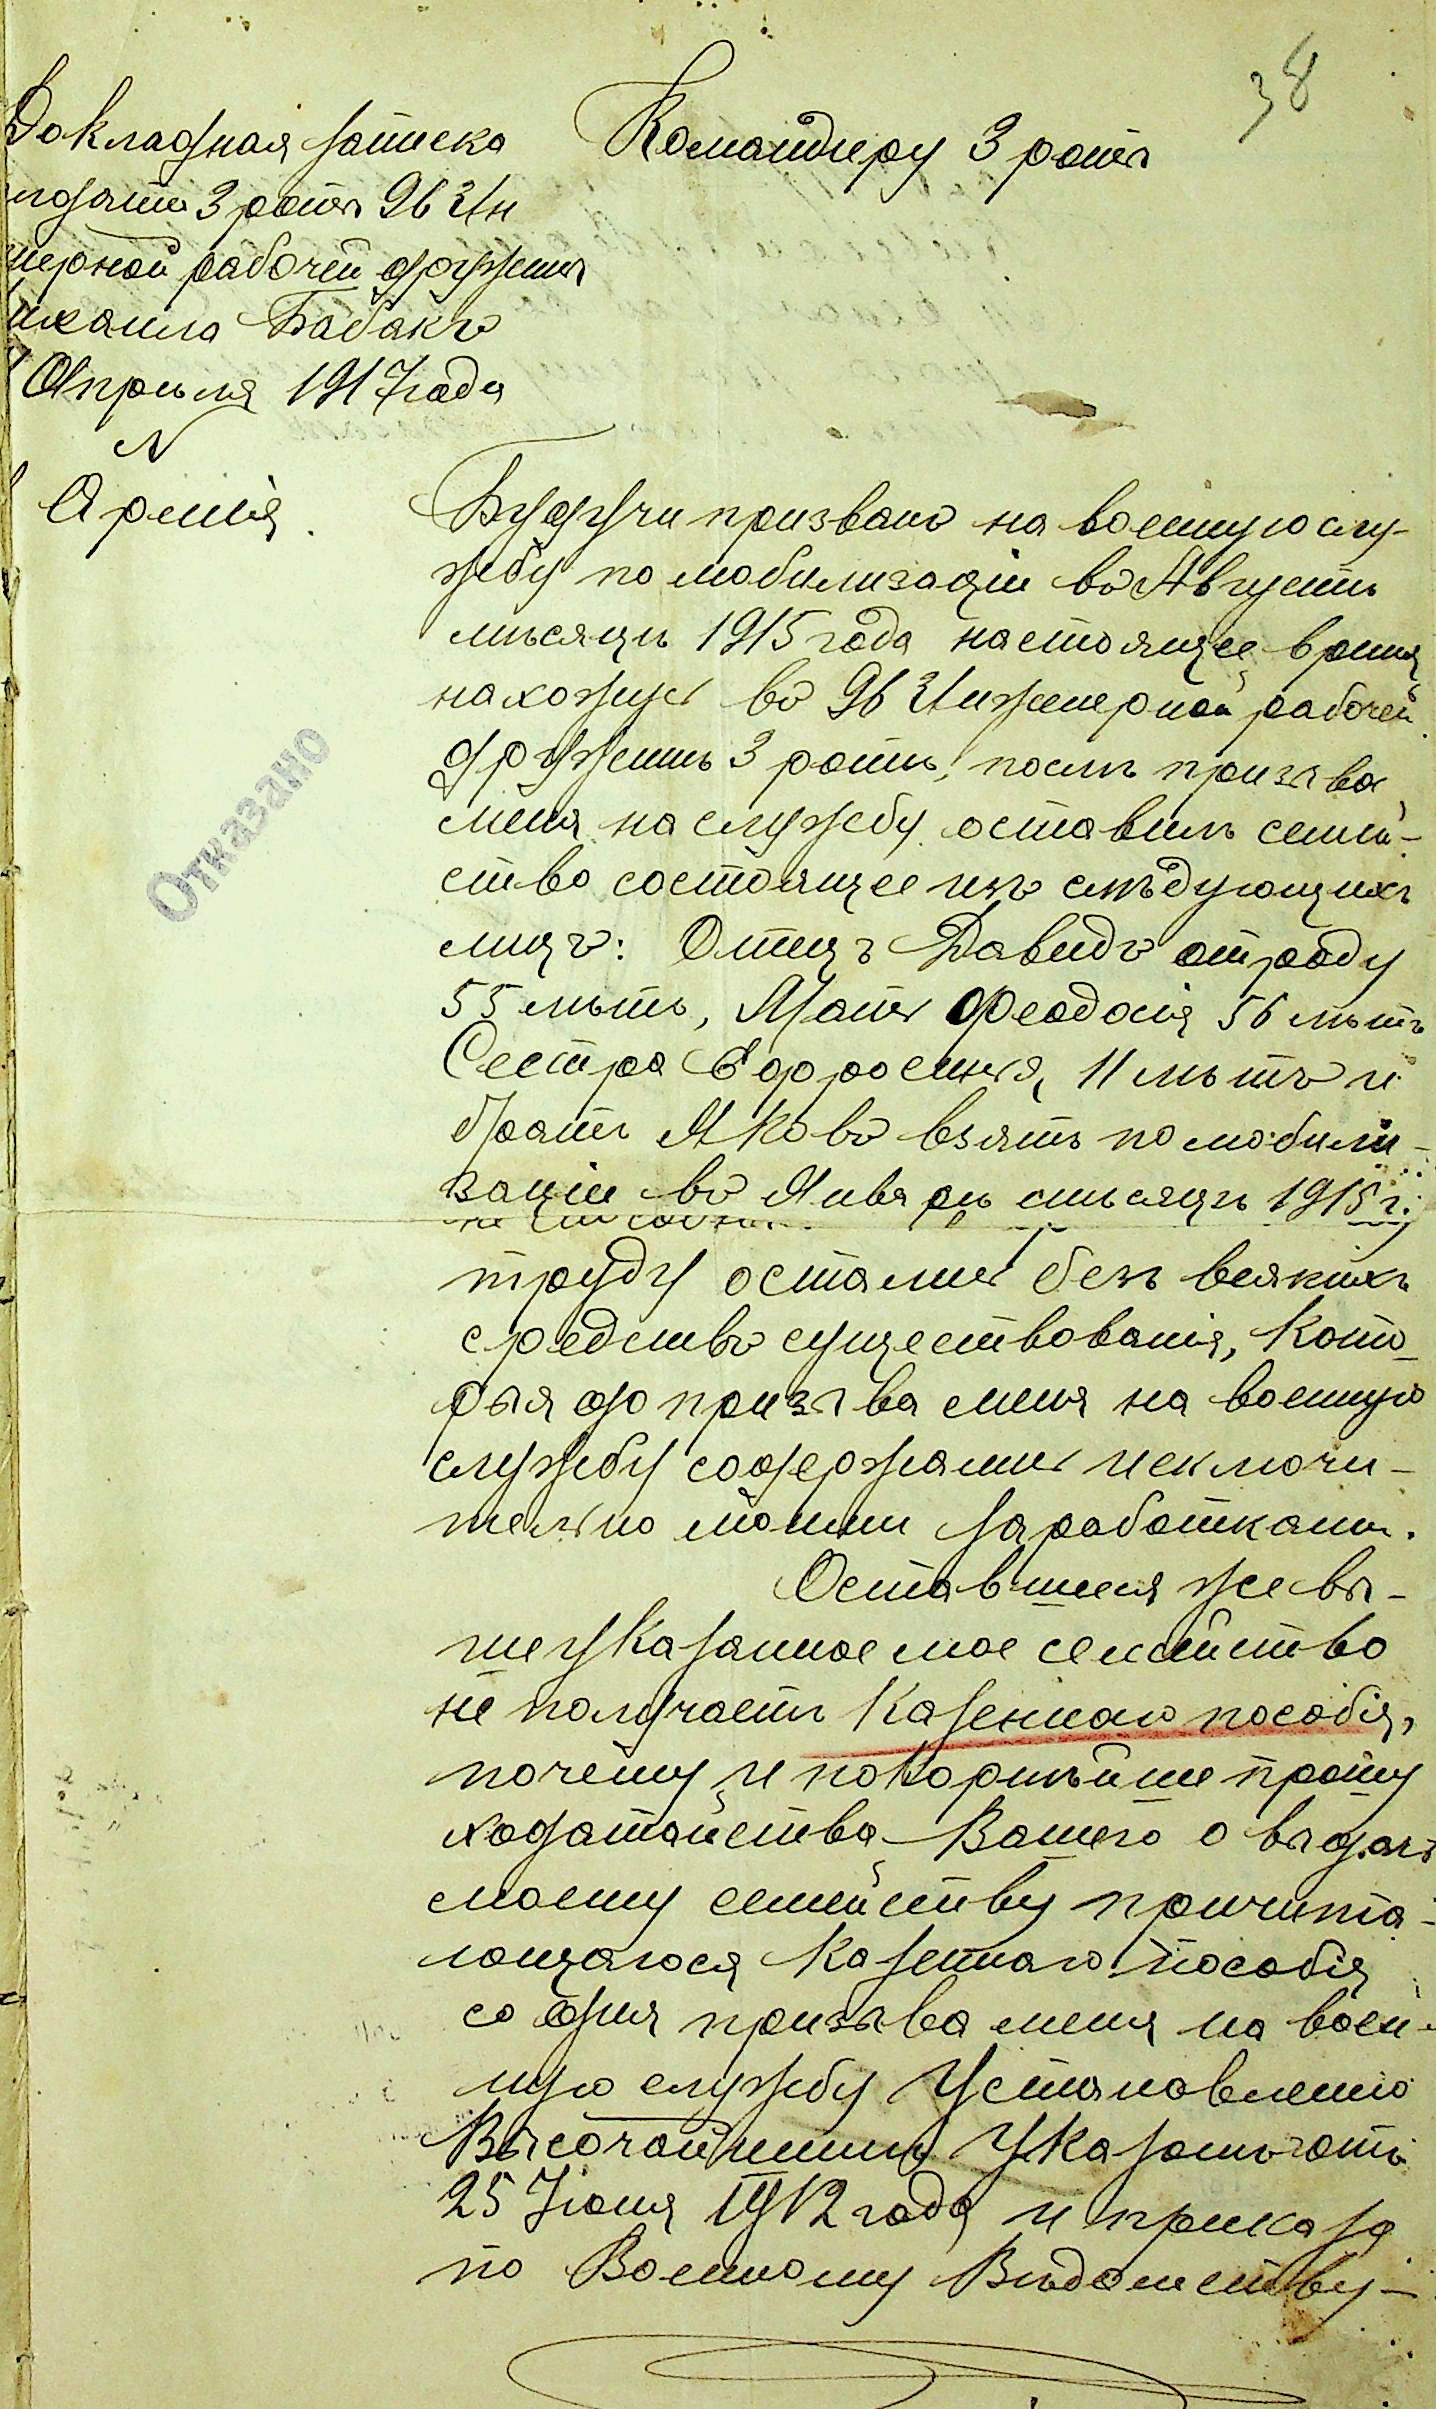 38
Докладная записка
солдата 3 роты 96 Ин
женерной рабочей дружины
Михаила Бабакъ
Апреля 1917 года
N
Армія.
Командиру 3 роты
Отказано
Будучи призванъ на военную слу-
жбу по мобилизаціи въ Августѣ
мѣсяцѣ 1915 года настоящее время
нахожусь въ 96 Инженерной рабочей
дружинѣ 3 ротѣ, послѣ призыва
меня на службу оставилъ семей-
ство состоящее изъ слѣдующихъ
лицъ: Отецъ Давидъ отроду
55 лѣтъ, Мать Феодосія 56 лѣтъ
Сестра Ефросинья, 11 лѣтъ и
братъ Яковъ взятъ по мобили-
заціи въ Январѣ мѣсяцѣ 1915 г.
труду остались безъ всякихъ
средствъ существованія, кото-
рыя до призыва меня на военную
службу содержались исключи-
тельно моими заработками.
Оставшееся же вы-
шеуказанное мое семейство
не получаетъ казеннаго пособія,
почему и покорнѣйше прошу
ходатайства Вашего о выдачѣ
моему семейству причита-
ющагося казеннаго пособія
со дня призыва меня на воен-
ную службу Установленію
Высочайшимъ Указомъ отъ
25 Іюня 1912 года и приказа
по Военному Вѣдомству-